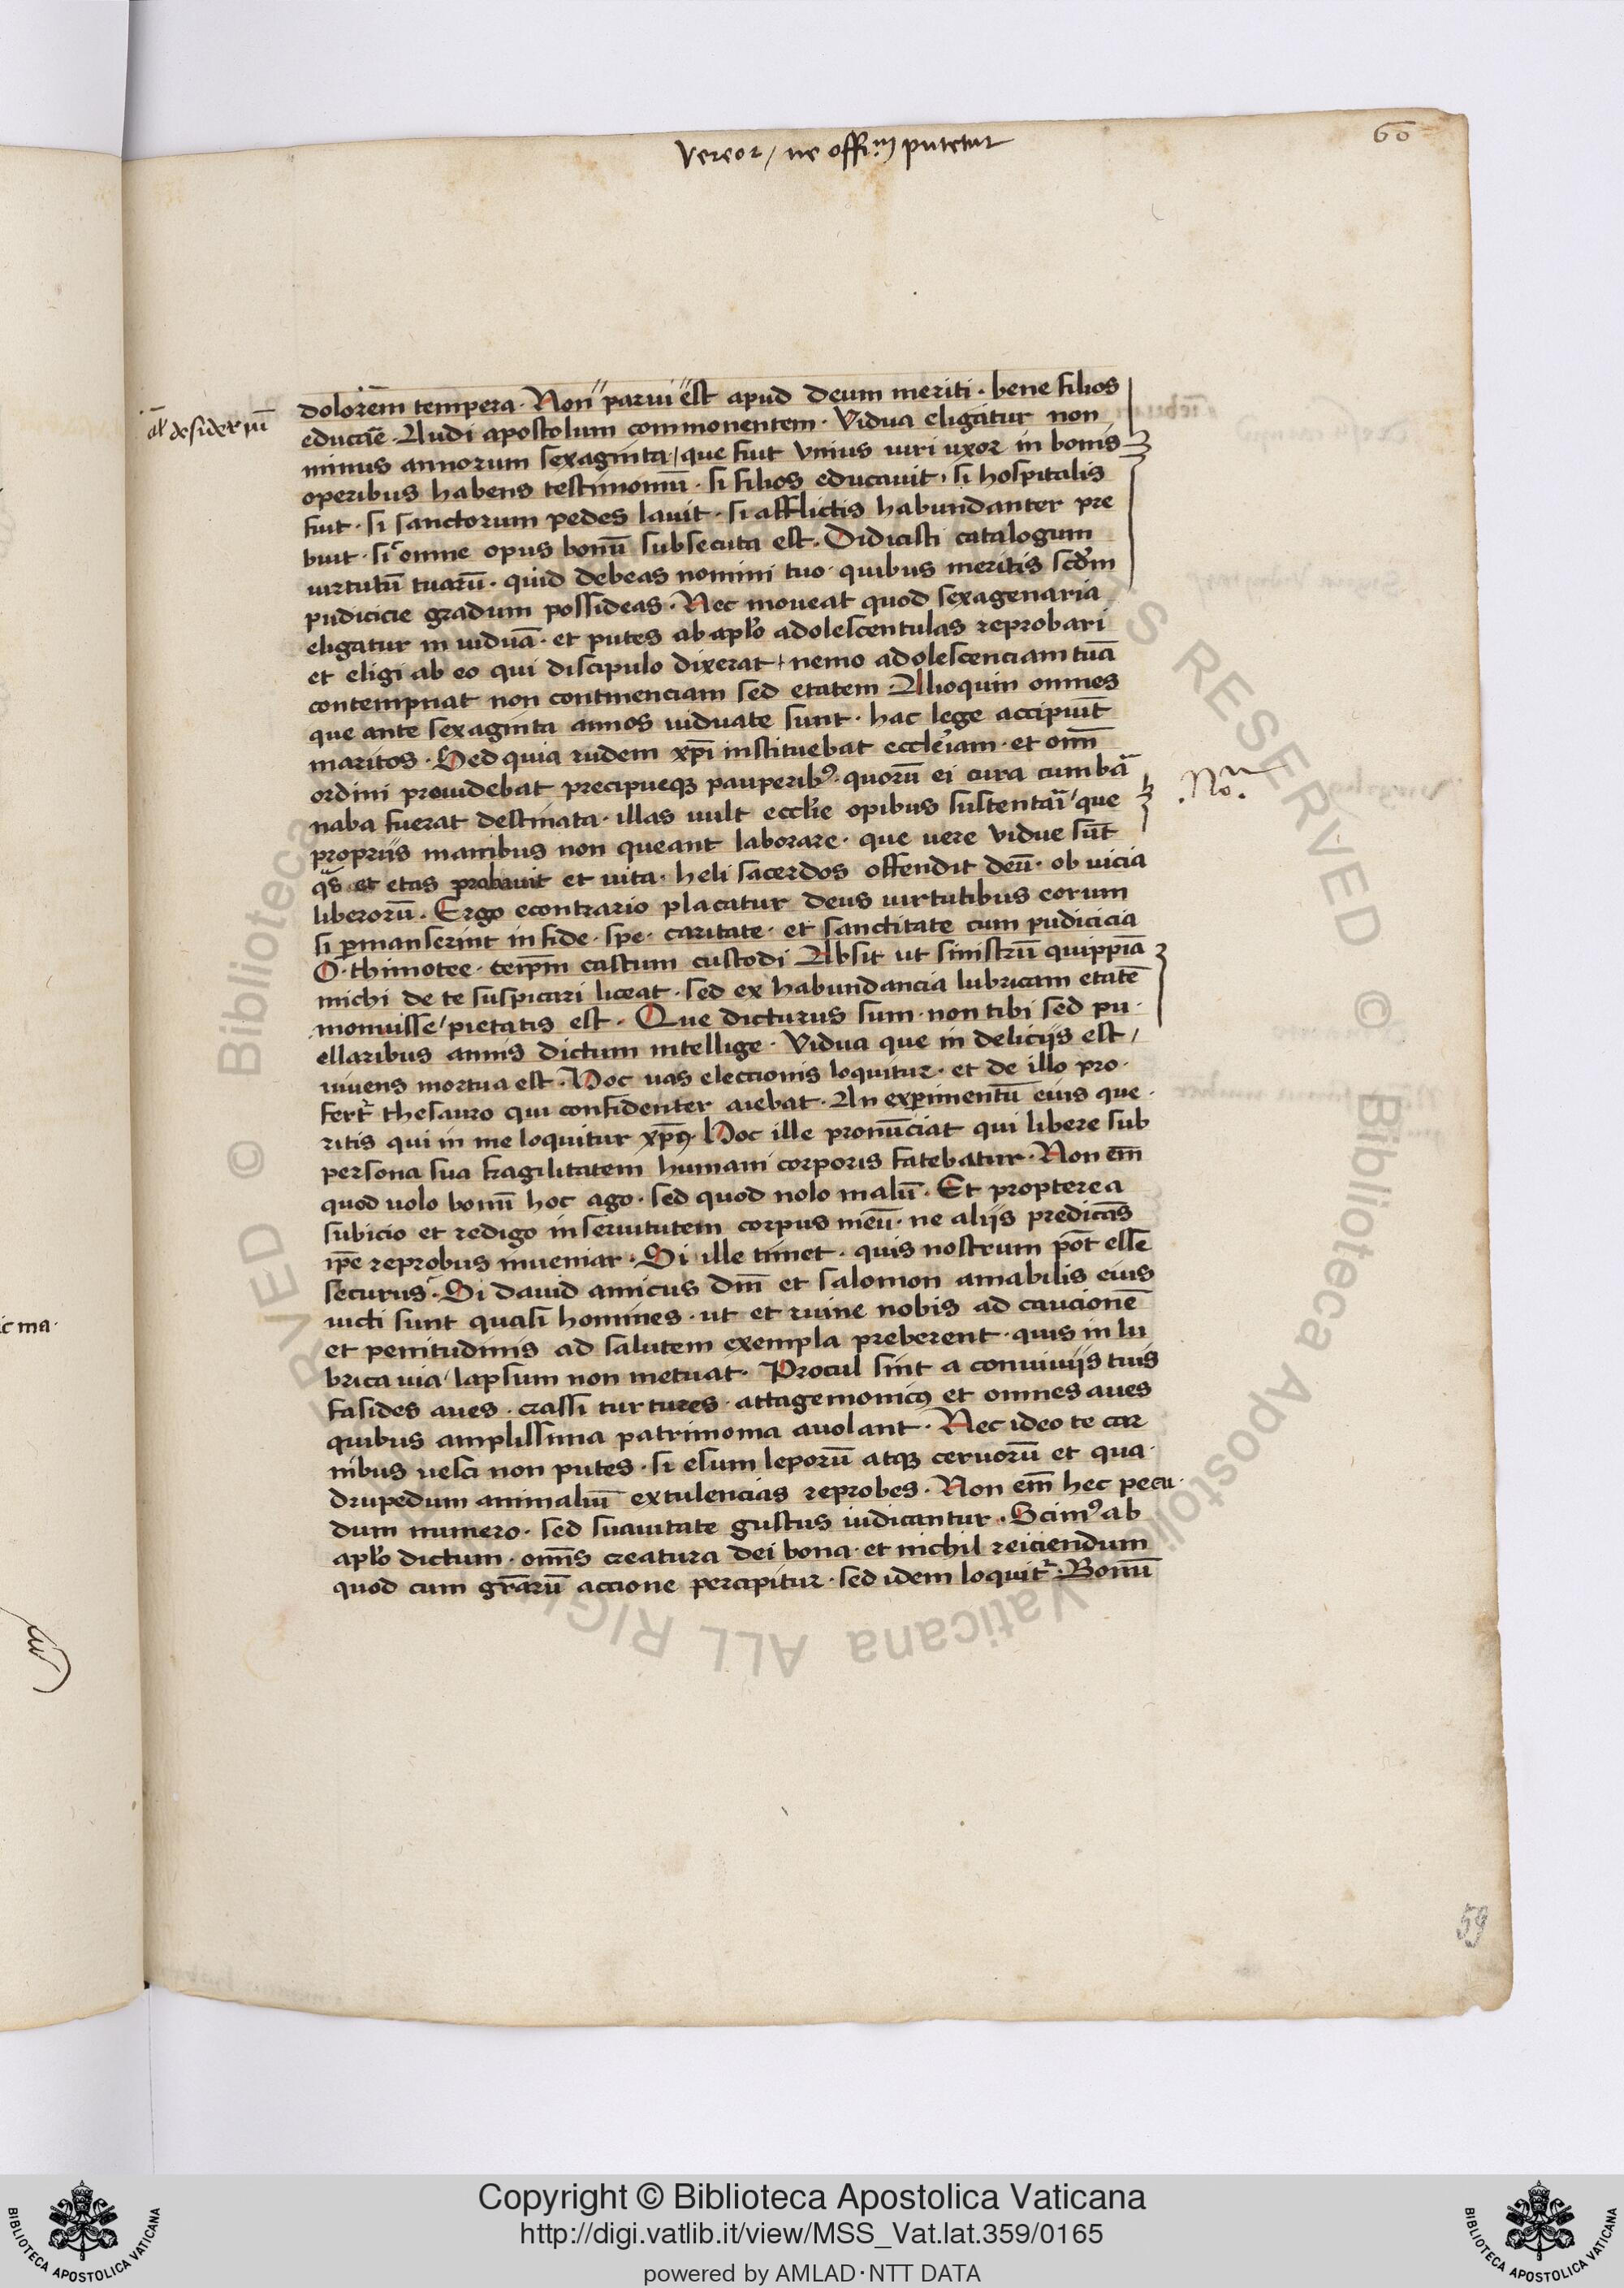 vereor / ne offim putetur
60
al' desideriū
dolorem tempera · Non parui est apud deum meriti · bene filios
educāe · Audi apostolum commonentem · Vidua eligatur non
minus annorum sexaginta / que fuit vnius uiri uxor in bonis
operibus habens testimoniū · si filios educauit · si hospitalis
fuit · si sanctorum pedes lauit · si afflictis habundanter pre
buit · si omne opus bonū subsecuta est · Didicisti catalogum
uirtutū tuarū · quid debeas nomini tuo · quibus meritis scđm
pudicicie gradum possideas · Nec moueat quod sexagenaria
eligatur in uiduā · et putes ab aplo adolescentulas reprobari
et eligi ab eo qui discipulo dixerat · nemo adolescenciam tuā
contempnat non continenciam sed etatem · Alioquin omnes
que ante sexaginta annos uiduate sunt · hac lege accipiūt
maritos · Sed quia rudem xp̄i instituebat eccleiam · et omī
ordini prouidebat precipueqȝ pauperibꝰ · quorū ei cura cum bā
naba fuerat destinata · illas uult ecclie opibus sustentari / que
.No.
propriis manibus non queant laborare · que uere vidue sūt
qͣs et etas probauit et uita · heli sacerdos offendit deū · ob uicia
liberorū · Ergo econtrario placatur deus uirtutibus eorum
si ꝑmanserint in fide · spe · caritate · et sanctitate cum pudicicia
O · thimotee · teip̄m castum custodi Absit ut sinistrū quippiā
michi de te suspicari liceat · sed ex habundancia lubricam etatē
monuisse / pietatis est · Que dicturus sum · non tibi sed pu
ellaribus annis dictum intellige · Vidua que in deliciis est /
uiuens mortua est · Hoc uas eleccionis loquitur · et de illo pro
fert thesauro qui confidenter aiebat · An exꝑimentū eius que
ritis qui in me loquitur xp̄s · Hoc ille pronūciat qui libere sub
persona sua fragilitatem humani corporis fatebatur · Non em̄
quod uolo bonū hoc ago · sed quod nolo malū · Et propterea
subicio et redigo in seruitutem corpus meū · ne aliis predicās
ip̄e reprobus inueniar · Si ille timet · quis nostrum pōt esse
securus · Si dauid amicus dm̄ et salomon amabilis eius
uicti sunt quasi homines · ut et ruine nobis ad caucionē
et penitudinis ad salutem exempla preberent · quis in lu
brica uia / lapsum non metuat · Procul sint a conuiuiis tuis
fasides aues · crassi turtures · attagemonicꝰ et omnes aues
quibus amplissima patrimonia auolant · Nec ideo te car
nibus uesci non putes · si esum leporū atqȝ ceruorū et qua
drupedum animaliū extulencias reprobes · Non em̄ hec pecu
dum numero · sed suauitate gustus iudicantur · Scimꝰ ab
aplo dictum · om̄s creatura dei bona · et nichil reiciendum
quod cum gr̄arū accione percipitur · sed idem loquit̄ · Bonū
59
ic ma ·
Copyright © Biblioteca Apostolica Vaticana
http://digi.vatlib.it/view/MSS_Vat.lat.359/0165
powered by AMLAD·NTT DATA
BIBLIOTECA APOSTOLICA VATICANA
BIBLIOTECA APOSTOLICA VATICANA